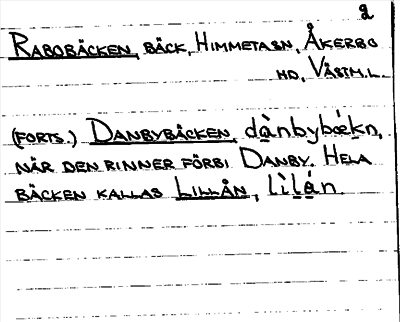 2
RABOBÄCKEN, BÄCK, HIMMETA SN, ÅKERBO
HD, VÄSTM.L.
(FORTS.) DANBYBÄCKEN, dànbybækn,
NÄR DEN RINNER FÖRBI DANBY. HELA
BÄCKEN KALLAS LILLÅN, lìlán.